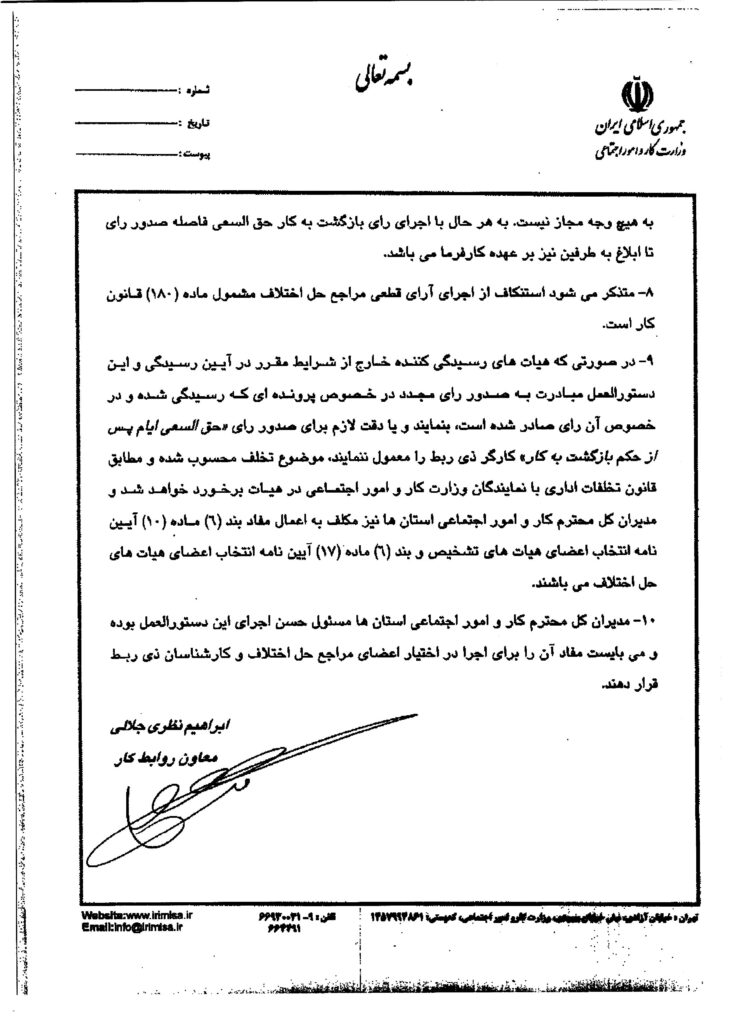 بسمه تعالی
جمهوری اسلامی ایران
وزارت کار و امور اجتماعی
شماره :
تاریخ :
پیوست :
به هیچ وجه مجاز نیست. به هر حال با اجرای رای بازگشت به کار حق السعی فاصله صدور رای
تا ابلاغ به طرفین نیز بر عهده کارفرما می باشد.
۸- متذکر می شود استنکاف از اجرای آرای قطعی مراجع حل اختلاف مشمول ماده (۱۸۰) قانون
کار است.
۹- در صورتی که هیات های رسیدگی کننده خارج از شرایط مقرر در آیین رسیدگی و این
دستورالعمل مبادرت به صدور رای مجدد در خصوص پرونده ای که رسیدگی شده و در
خصوص آن رای صادر شده است، بنمایند و یا دقت لازم برای صدور رای «حق السعی ایام پس
از حکم بازگشت به کار» کارگر ذی ربط را معمول ننمایند، موضوع تخلف محسوب شده و مطابق
قانون تخلفات اداری با نمایندگان وزارت کار و امور اجتماعی در هیات برخورد خواهد شد و
مدیران کل محترم کار و امور اجتماعی استان ها نیز مکلف به اعمال مفاد بند (۶) ماده (۱۰) آیین
نامه انتخاب اعضای هیات های تشخیص و بند (۶) ماده (۱۷) آیین نامه انتخاب اعضای هیات های
حل اختلاف می باشند.
۱۰- مدیران کل محترم کار و امور اجتماعی استان ها مسئول حسن اجرای این دستورالعمل بوده
و می بایست مفاد آن را برای اجرا در اختیار اعضای مراجع حل اختلاف و کارشناسان ذی ربط
قرار دهند.
ابراهیم نظری جلالی
معاون روابط کار
تهران : خیابان آزادی، نبش خیابان، وزارت کار و امور اجتماعی، کدپستی: ۱۴۵۷۹۹۴۸۶۱
تلفن : ۹-۶۶۹۳۰۰۳۱
۶۶۴۴۹۱
Website:www.irimlsa.ir
Email:info@irimlsa.ir